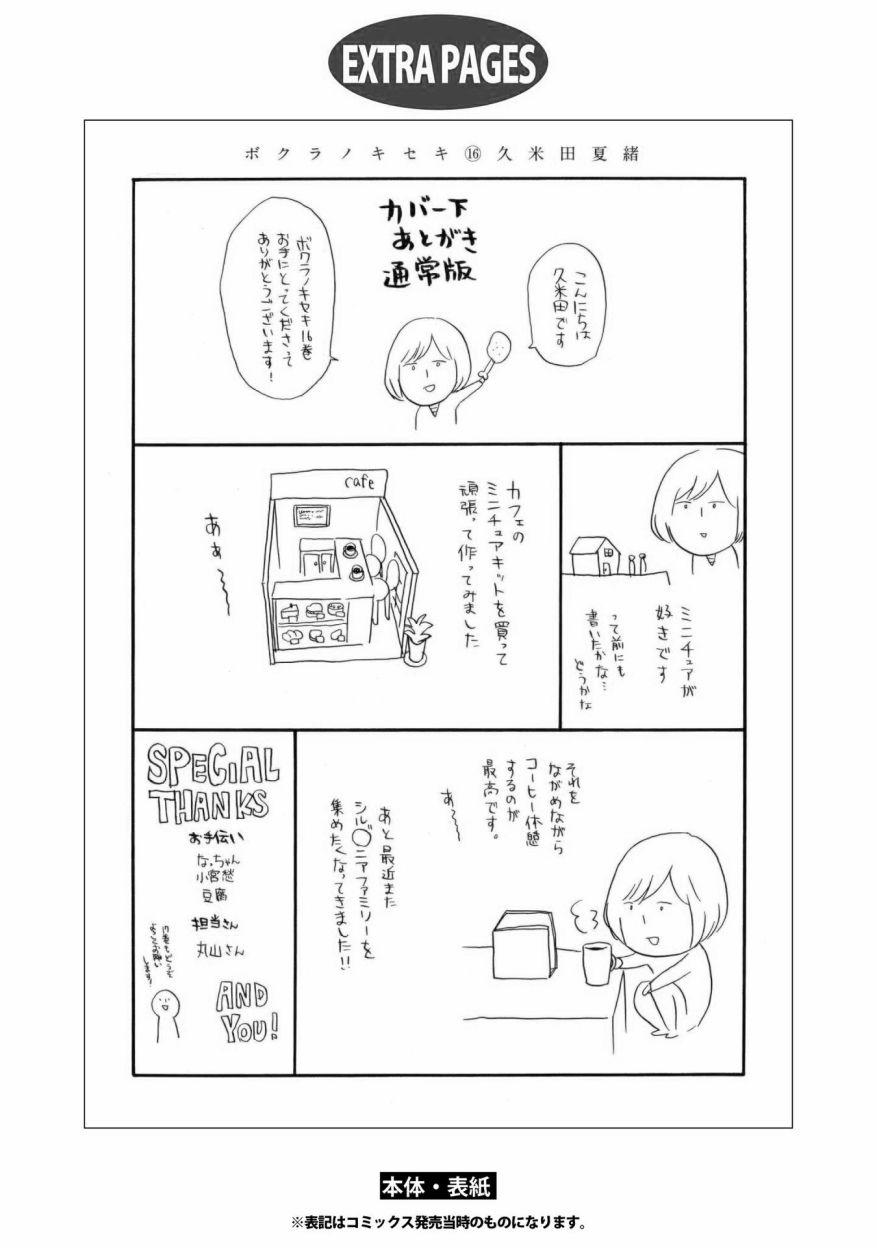 EXTRA PAGES
ボクラノキセキ⑯久米田夏緒
カバー下
あとがき
通常版
こんにちは
久米田です
ボクラノキセキ16巻
お手にとってくださって
ありがとうございます!
ミニチュアが
好きです
って前にも
書いたかな…
どうかな
カフェの
ミニチュアキットを買って
頑張って作ってみました
cafe
あぁ〜〜
それを
ながめながら
コーヒー休憩
するのが
最高です。
あ〜〜
あと最近また
シル◯ニアファミリーを
集めたくなってきました!!
SPECIAL
THANKS
お手伝い
なっちゃん
小宮愁
豆腐
担当さん
丸山さん
17巻もどうぞ
よろしくお願い
します!
AND
YOU!
本体・表紙
※表記はコミックス発売当時のものになります。